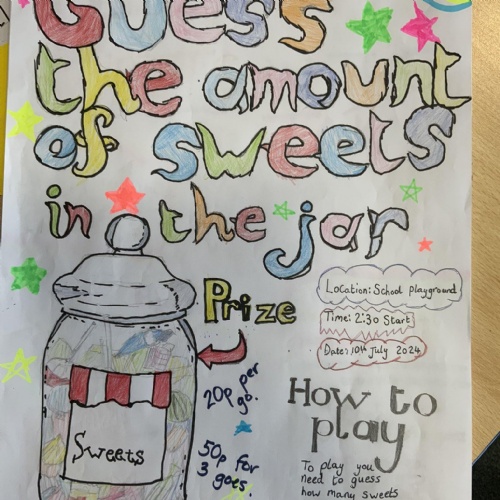 Guess
the amount
of sweets
in the jar
Prize
Location: School playground
Time: 2:30 Start
Date: 10th July 2024
20p per
go.
50p for
3 goes.
Sweets
How to
play
To play you
need to guess
how many sweets